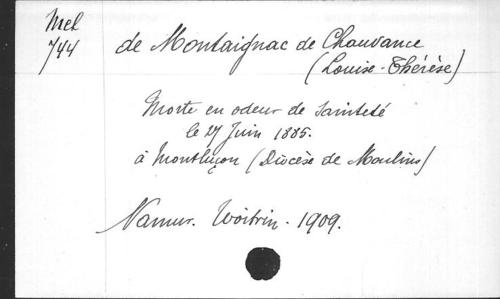 Mel
744
de Montaignac de Chauvance
(Louise-Thérèse)
Morte en odeur de Sainteté
le 27 Juin 1885.
à Montluçon (Diocèse de Moulins)
Namur. Woitrin. 1909.